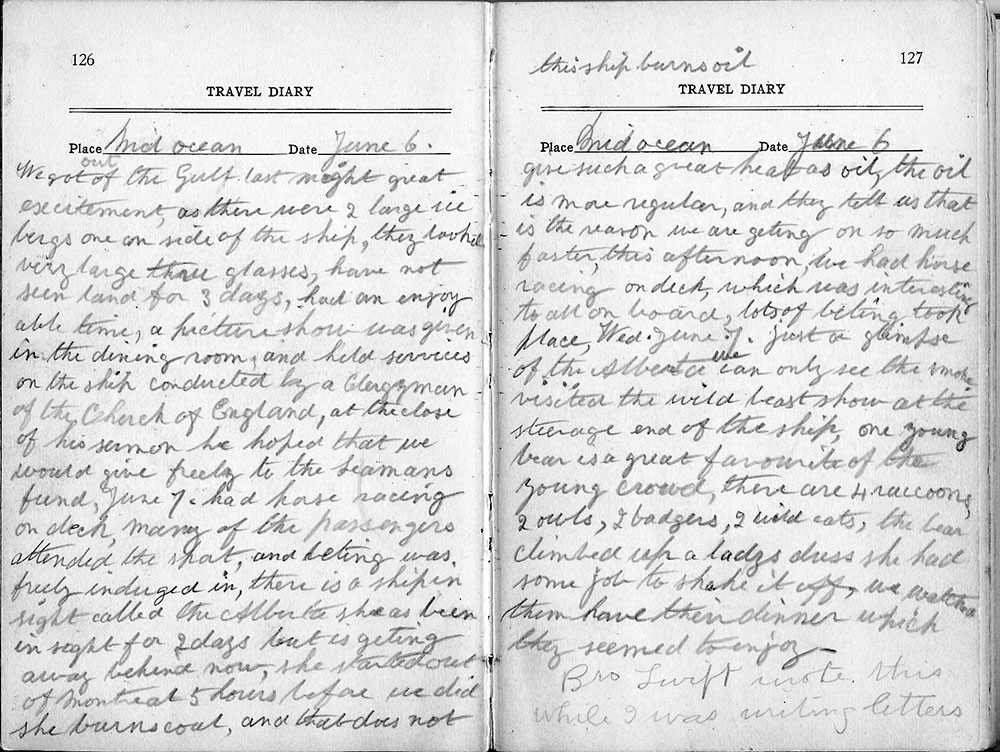 126
TRAVEL DIARY
Place Mid ocean Date June 6.
out
We got of the Gulf last night great
excitement, as there were 2 large ice
bergs one on side of the ship, they looked
very large three glasses, have not
seen land for 3 days, had an enjoy
able time, a picture show was given
in the dining room, and held services
on the ship conducted by a Clergyman
of the Church of England, at the close
of his sermon he hoped that we
would give freely to the Seamans
fund, June 7. had horse racing
on deck, many of the passengers
attended the spot, and beting was
freely induged in, there is a ship in
sight called the Alberta she as been
in sight for 2 days but is geting
away behind now, she started out
of Montreal 5 hours before we did
she burns coal, and that does not
this ship burns oil
127
TRAVEL DIARY
Place Mid ocean Date June 6
give such a great heat as oil, the oil
is more regular, and they tell us that
is the reason we are geting on so much
faster, this afternoon, we had horse
racing on deck, which was interesting
to all on board, lots of beting took
place, Wed. June 7. just a glimpse
of the Alberta we can only see the smoke
visited the wild beast show at the
steerage end of the ship, one young
bear is a great favourite of the
young crowd, there are 4 raccoons,
2 owls, 2 badgers, 2 wild cats, the bear
climbed up a ladys dress she had
some job to shake it off, we watched
them have their dinner which
they seemed to enjoy
Bro Swift wrote this
while I was writing letters